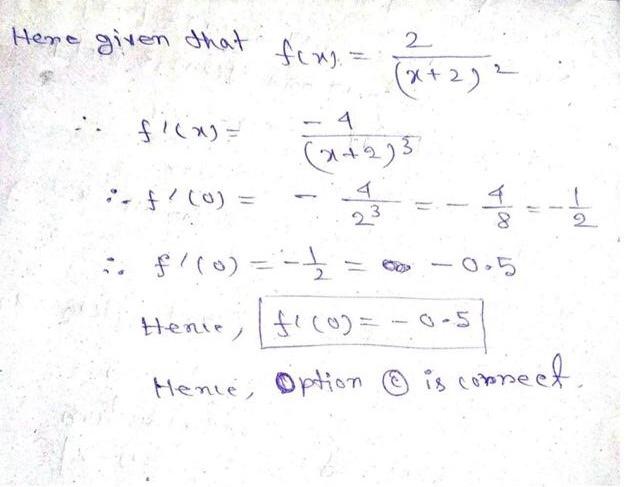 Here given that f(x) = 2/(x+2)²
∴ f'(x) = -4/(x+2)³
∴ f'(0) = - 4/2³ = - 4/8 = - 1/2
∴ f'(0) = - 1/2 = - 0.5
Hence, f'(0) = - 0.5
Hence, Option ⓒ is correct.